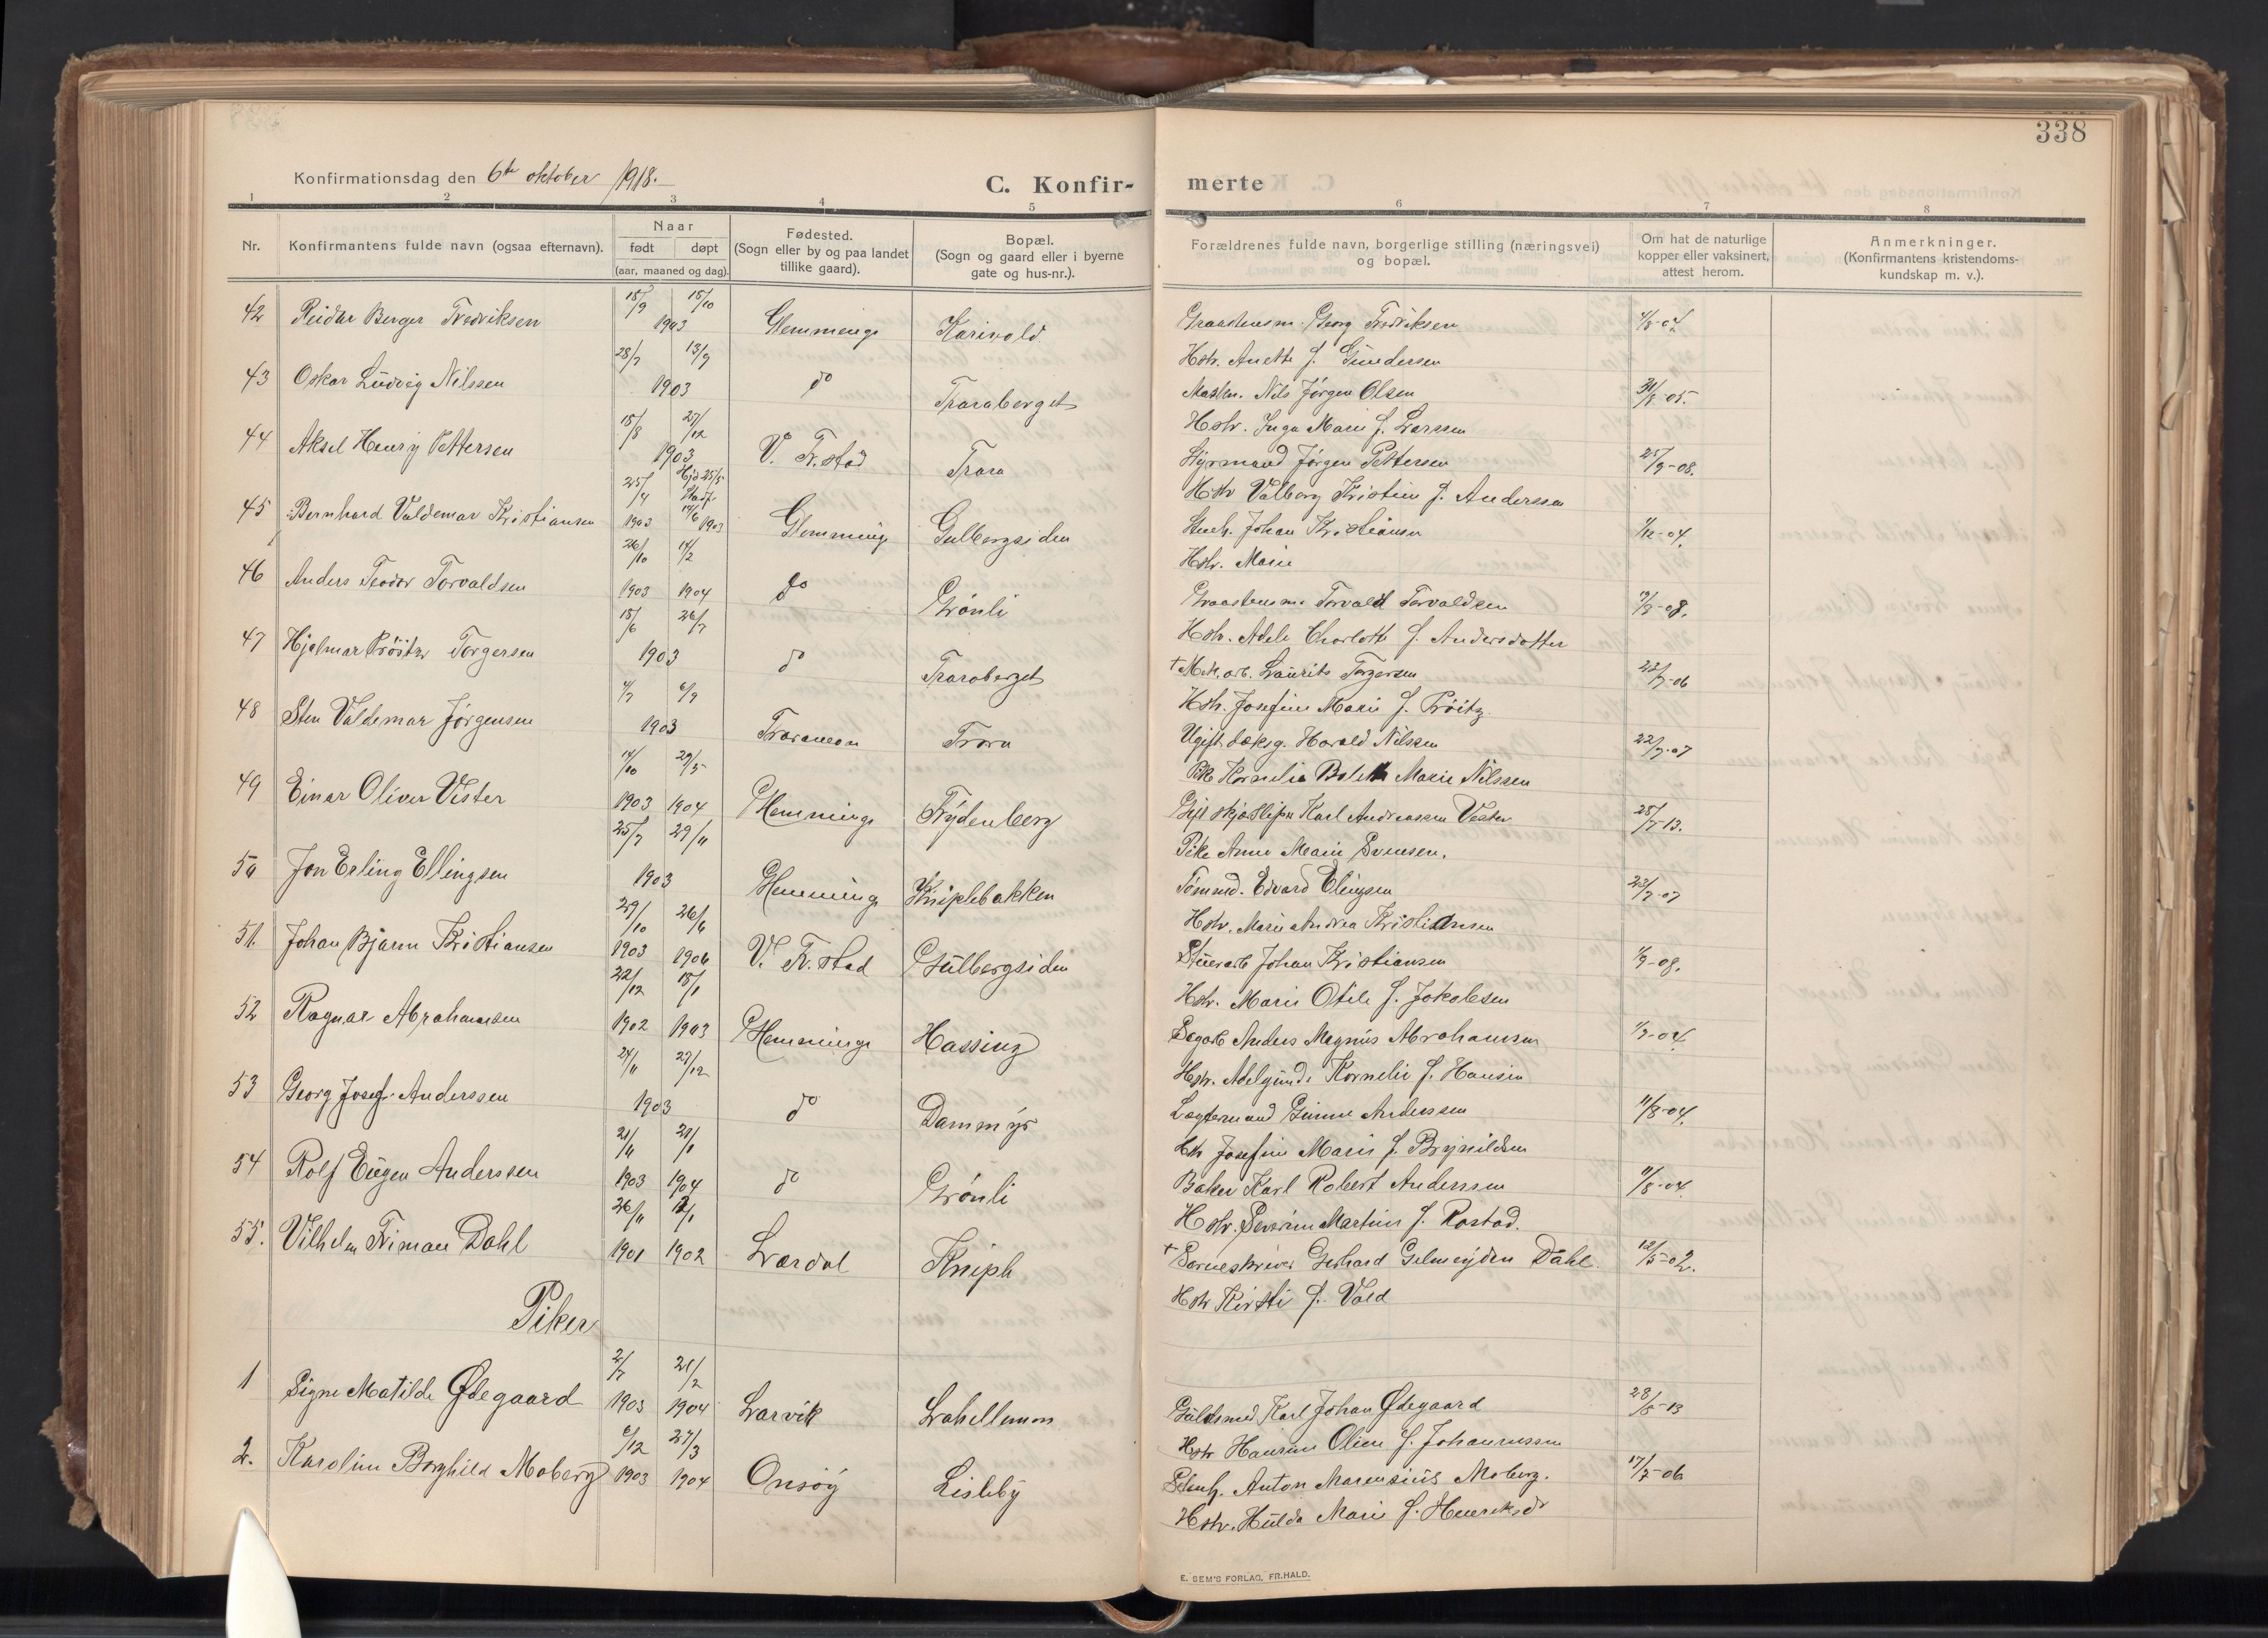 338
Konfirmationsdag den 6te oktober 1918.
C. Konfir- merte
1 2 3 4 5 6 7 8
Nr.
Konfirmantens fulde navn (ogsaa efternavn).
Naar
født døpt
(aar, maaned og dag).
Fødested.
(Sogn eller by og paa landet
tillike gaard).
Bopæl.
(Sogn og gaard eller i byerne
gate og hus-nr.).
Forældrenes fulde navn, borgerlige stilling (næringsvei)
og bopæl.
Om hat de naturlige
kopper eller vaksinert,
attest herom.
Anmerkninger.
(Konfirmantens kristendoms-
kundskap m. v.).
42 Reidar Berger Fredriksen 18/9 18/10 1903 Glemminge Karivold Georg Fredriksen
Hstr. Anette f. Gundersen
43 Oskar Ludvig Nilssen 28/7 13/9 1903 do Traraberget Nils Jørgen Olsen 31/8-05.
Hstr. Inga Marie f. Larssen
44 Aksel Henry Pettersen 18/8 27/12 1903 V. Fr.stad Trara Styrmand Jørgen Pettersen 25/9-08.
Hstr Valborg Kristine f. Anderssen
45 Bernhard Valdemar Kristiansen 25/4 1903 Hjd 25/5 Stadf. 14/6 1903 Glemminge Gulbergsiden Stenh. Johan Kristiansen 1/12-04.
Hstr. Marie
46 Anders Teodor Torvaldsen 26/10 1903 14/2 1904 do Grönli Torvald Torvaldsen
Hstr. Adele Charlotte f. Andersdotter
47 Hjalmar Pröitz Torgersen 18/6 26/7 1903 do Traraberget † Mek. arb. Laurits Torgersen 23/7-06
Hstr. Josefine Marie f. Pröitz
48 Sten Valdemar Jørgensen 4/7 6/9 1903 Traraveien Trara Ugift Harald Nilssen 22/7-07
Pike Kornelia Bolette Marie Nilssen
49 Einar Oliver Vester 14/10 1903 29/5 1904 Glemminge Frydenberg Gift Karl Andreassen Vester 28/7-13.
Pike Anna Marie Svensen.
50 Jon Erling Ellingsen 25/7 29/11 1903 Glemminge Kniplebakken Tømmd. Edvard Elingsen 23/7-07
Hstr. Marie Andrea Kristiansen
51. Johan Bjarne Kristiansen 29/10 1903 26/6 1906 V. Fr. stad Gulbergsiden Johan Kristiansen 1/9-08.
Hstr. Marie Otile f. Jakobsen
52 Ragnar Abrahamsen 22/12 1902 18/1 1903 Glemminge Hassing Sagarb Anders Magnus Abrahamsen 1/9-04.
Hstr. Adelgunde Kornelie f. Hansen
53 Georg Josef Anderssen 24/11 27/12 1903 do Dammyr Gunne Anderssen 11/8-04.
Hstr Josefine Marie f. Brynildsen
54 Rolf Eugen Anderssen 21/11 1903 21/1 1904 do Grönli Baker Karl Robert Anderssen 11/8-04.
Hstr. Martine f. Rostad.
55. Vilhelm Friman Dahl 26/11 1901 12/1 1902 Lærdal Kniple † Sorenskriver Gerhard Gelmeyden Dahl. 12/5-02.
Hstr Kirsti f. Vold
Piker
1 Signe Matilde Ødegaard 2/7 1903 21/2 1904 Larvik Lahellemoen Guldsmed Karl Johan Ødegaard 28/5-13
Hstr Hansine Oline f. Johannessen
2. Karoline Borghild Moberg 6/12 1903 27/3 1904 Onsöy Lisleby Stenh. Anton Marensius Moberg. 17/7-06
Hstr. Hulda Marie f. Henriksd
E. SEM'S FORLAG, FR.HALD.